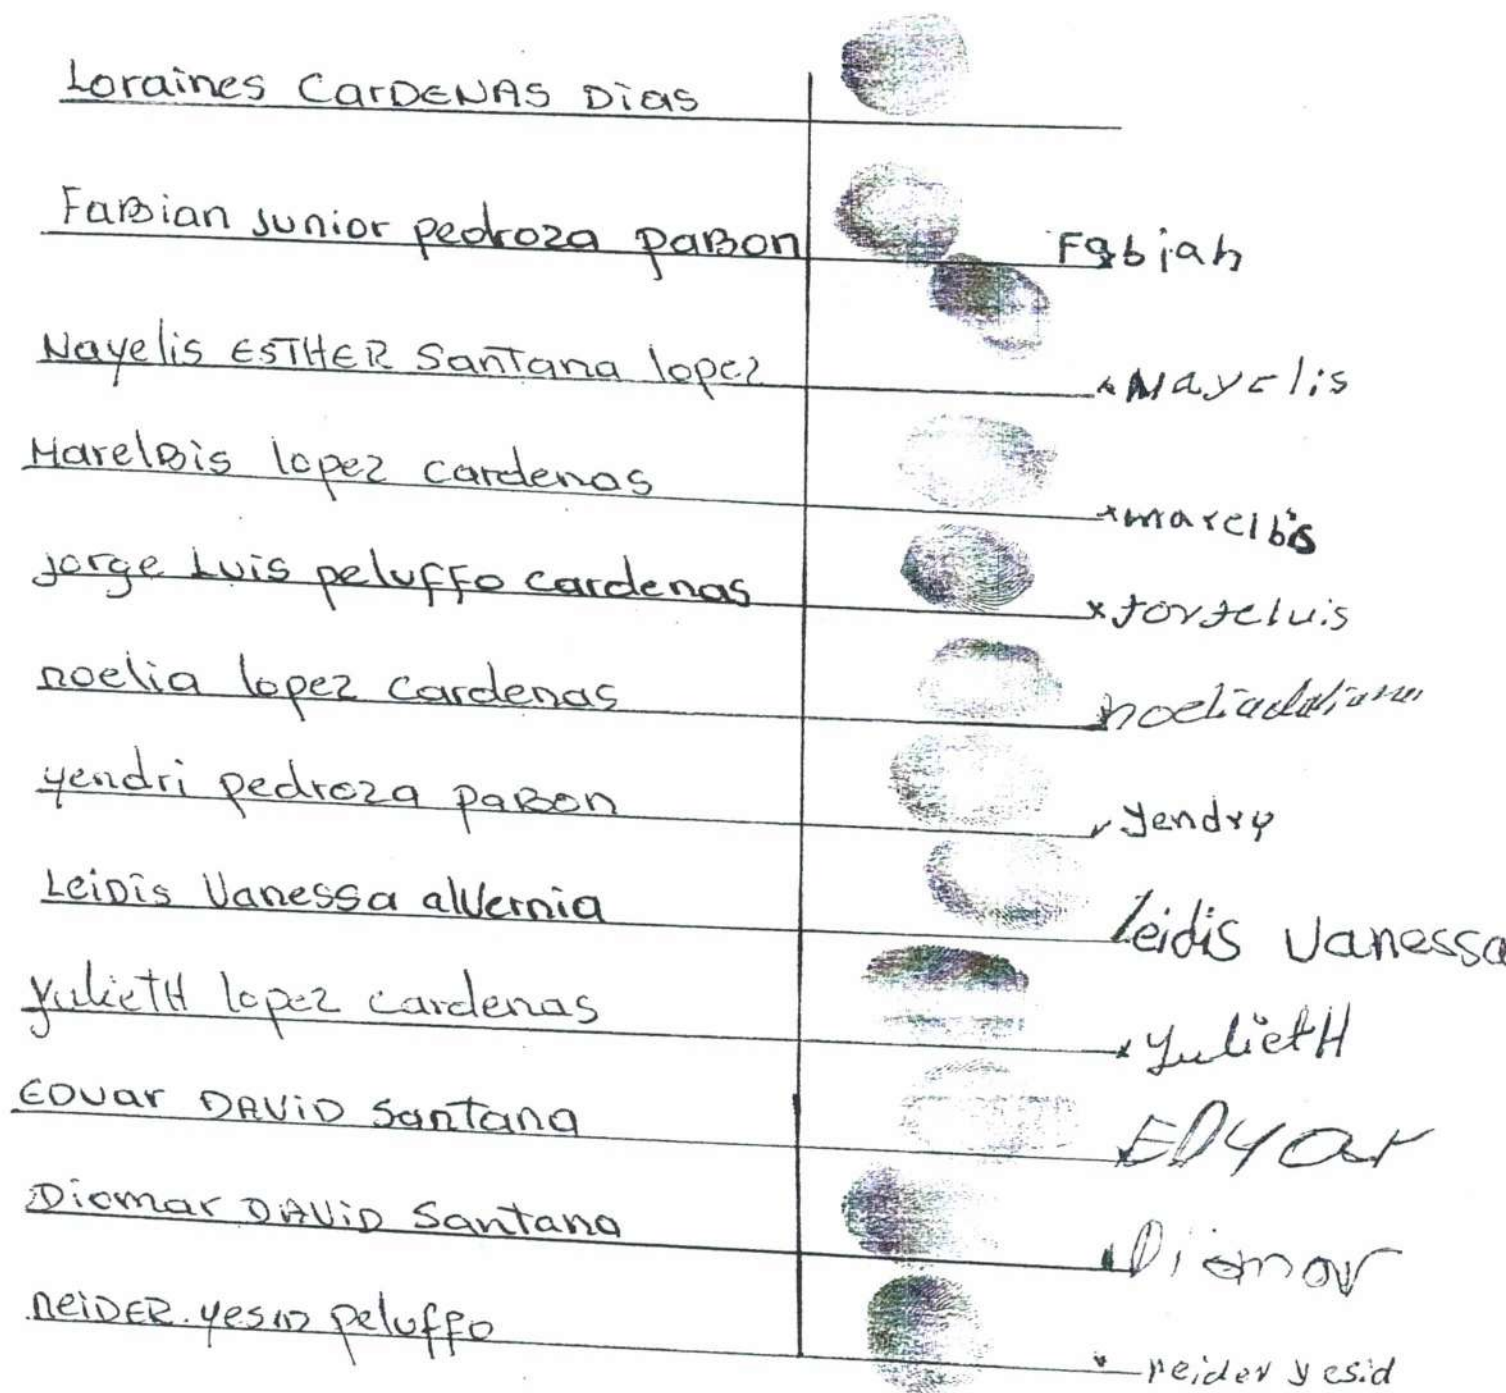 Loraines CarDENAS Dias
FaBian Junior pedroza paBon Fabian
Nayelis ESTHER Santana lopez Nayelis
MarelBis lopez cardenas marelbis
jorge Luis peluffo cardenas Jorgeluis
noelia lopez cardenas
yendri pedroza paBon yendry
LeiDis Vanessa alVernia leidis Vanessa
yulietH lopez cardenas yulietH
EDuar DAViD Santana EDuar
Diomar DAViD Santana Diomar
neiDER yesiD peluffo neider yesid